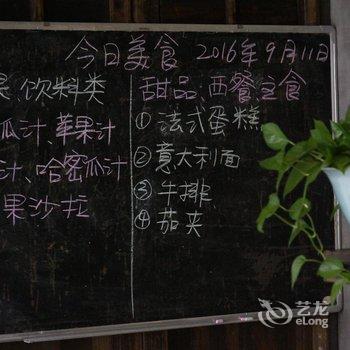 今日美食 2016年9月11日
果、饮料类
瓜汁、苹果汁
汁、哈密瓜汁
果沙拉
甜品、西餐主食
①法式蛋糕
②意大利面
③牛排
④茄夹
艺龙
eLong